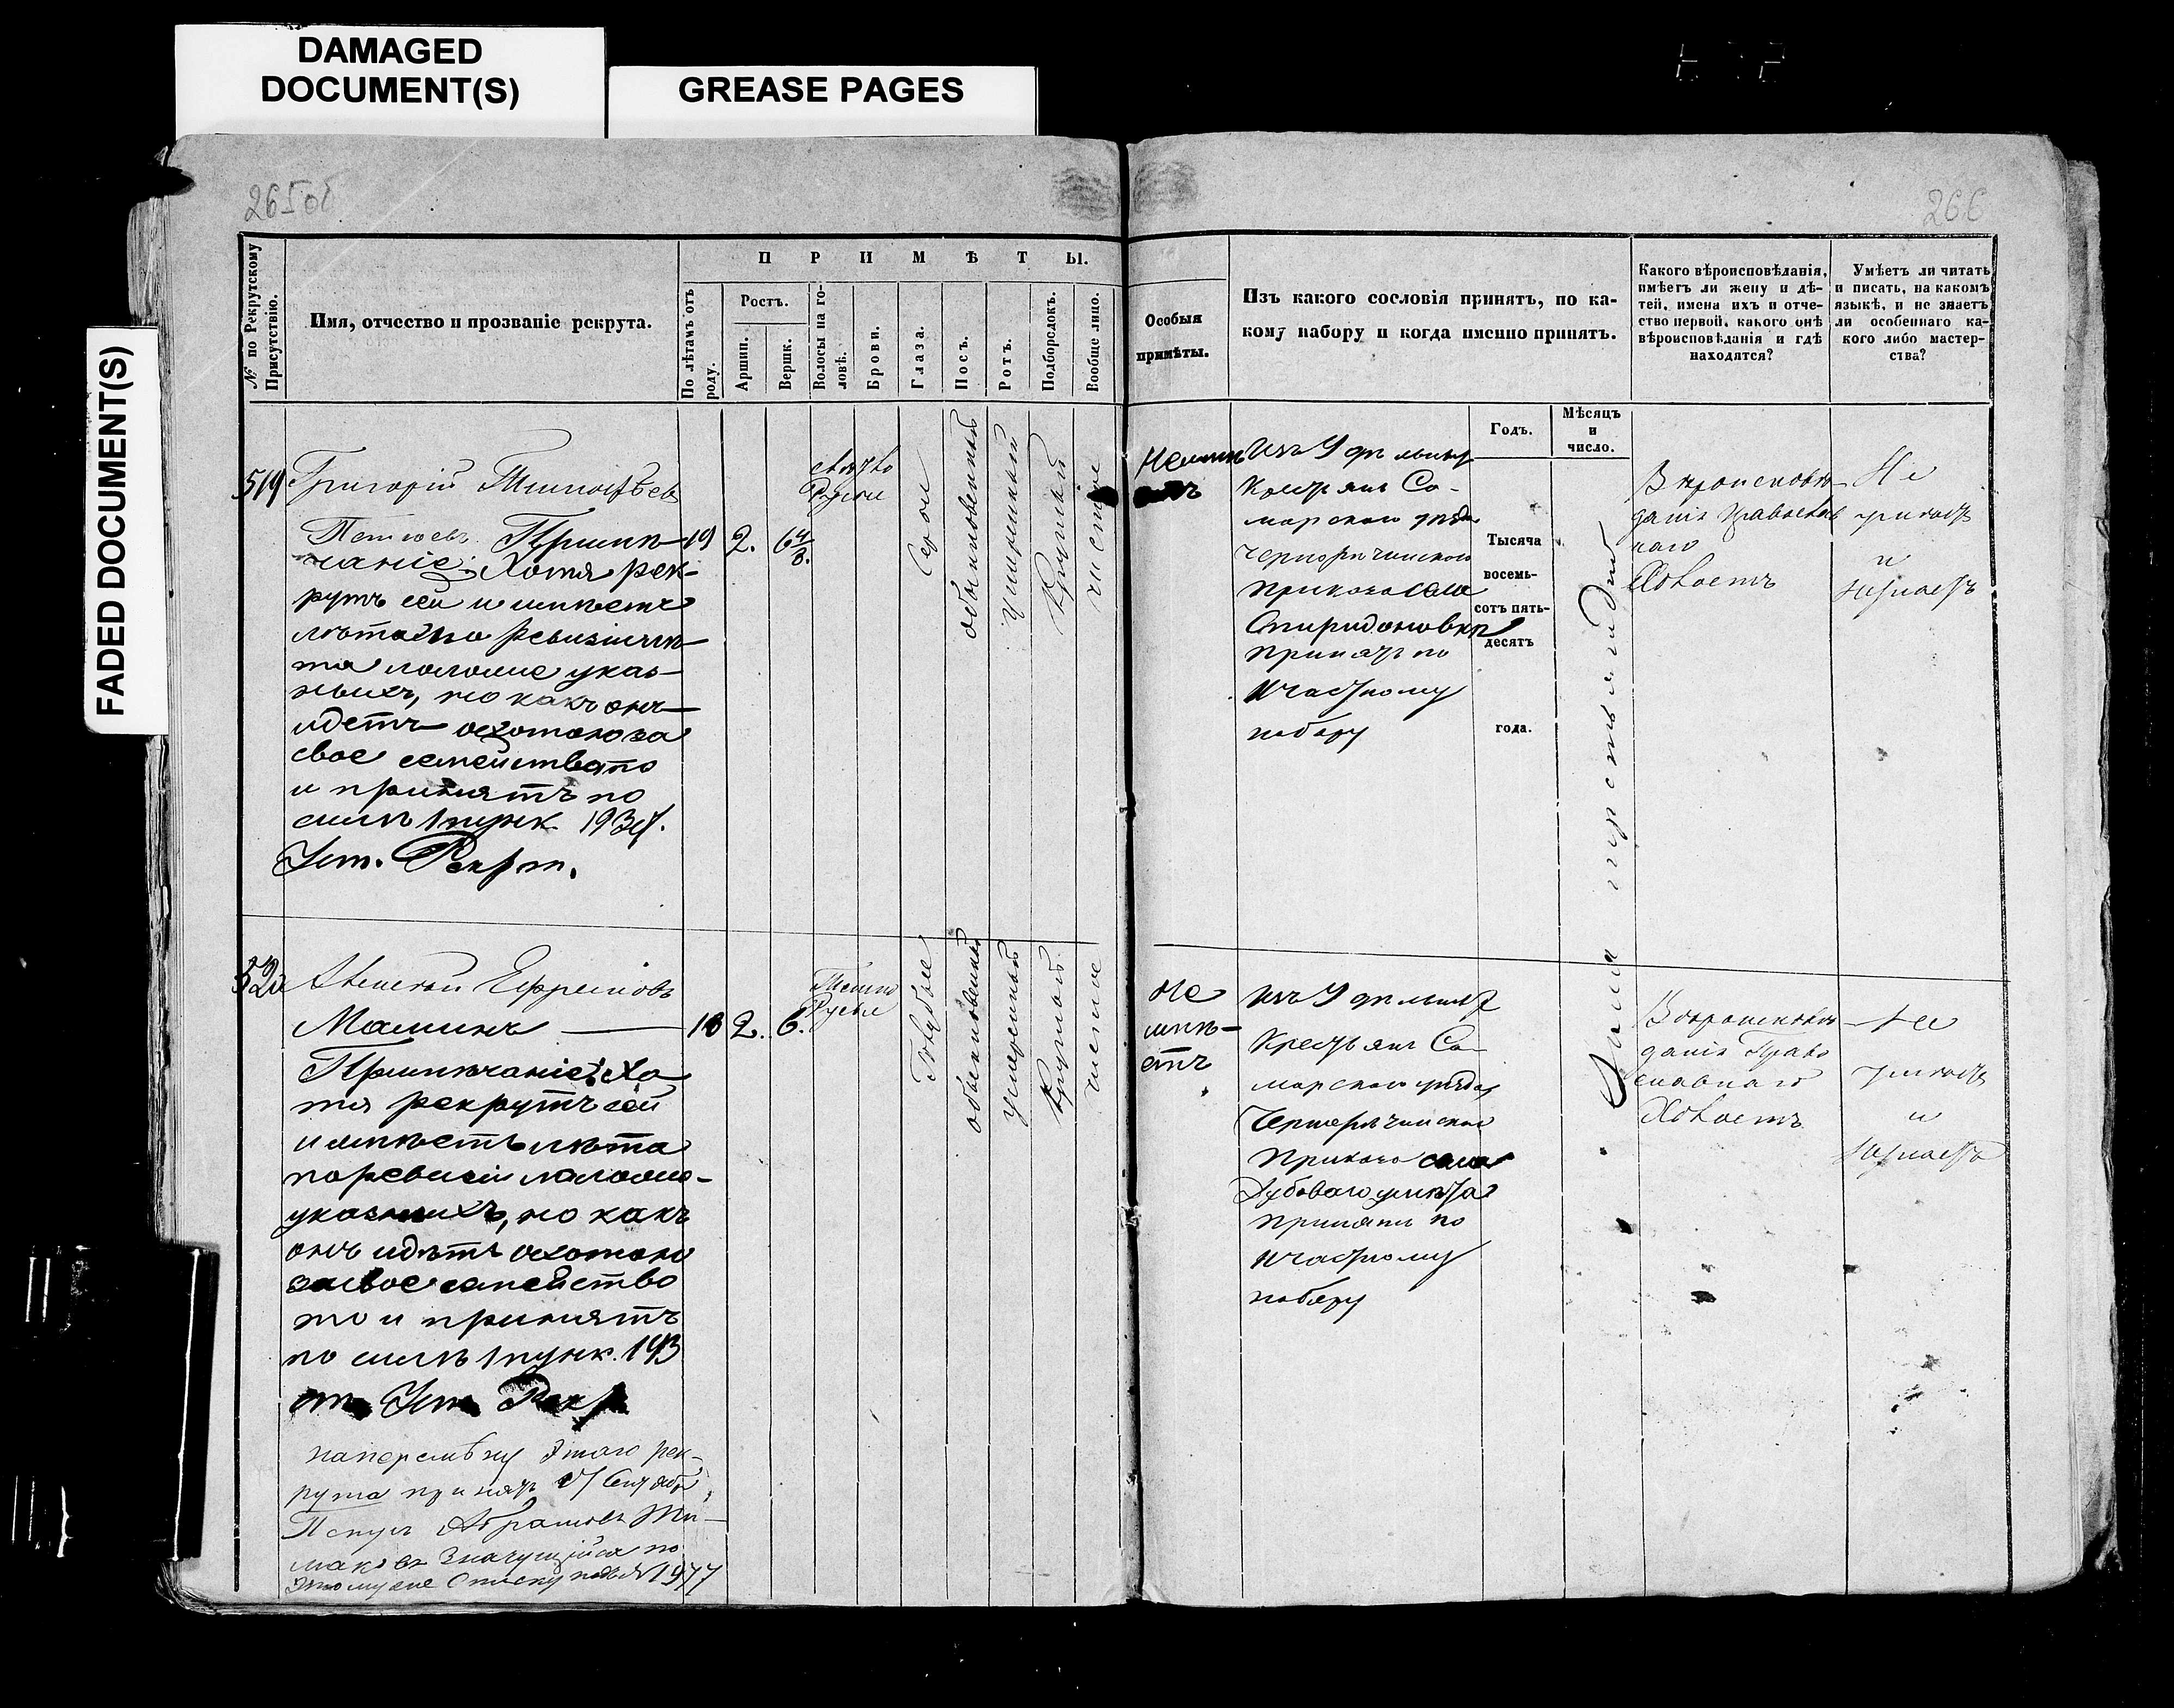 DAMAGED
DOCUMENT(S)
GREASE PAGES
FADED DOCUMENT(S)
265об
266
№ по Рекрутскому
Присутствію.
Имя, отчество и прозваніе рекрута.
П Р И М Ѣ Т Ы.
По лѣтамъ отъ
роду.
Ростъ.
Аршин.
Вершк.
Волосы на го-
ловѣ.
Брови.
Глаза.
Носъ.
Ротъ.
Подбородокъ.
Вообще лицо.
Особыя
примѣты.
Изъ какого сословія принятъ, по ка-
кому набору и когда именно принятъ.
Какого вѣроисповѣданія,
имѣетъ ли жену и дѣ-
тей, имена ихъ и отче-
ство первой, какого онѣ
вѣроисповѣданія и гдѣ
находятся?
Умѣетъ ли читать
и писать, на какомъ
языкѣ, и не знаетъ
ли особеннаго ка-
кого либо мастер-
ства?
Годъ.
Мѣсяцъ
и
число.
Тысяча
восемь-
сотъ пять-
десятъ
года.
519
Григорій Тимофѣев
Примѣ-
чаніе: Хотя рек-
рутъ сей и имѣетъ
лѣта по ревизіи мѣ-
та половше указ-
ныхъ, но какъ онъ
идетъ охотою за
свое семейство то
и принятъ по
силѣ 1 пунк. 193 ст.
Уст. Рекрт.
19
2.
6 4/8.
свѣтло
Русые
Серые
обыкновенный
Умеренный
Круглый
чистое
Неимѣ
етъ
Изъ Удѣльныхъ
Крестьянъ Са-
марскаго уѣзда
Чернорѣченскаго
Приказа села
Спиридоновки
Принятъ по
частному
набору
Вѣроисповѣ-
данія Православ
наго
Холостъ
Не
грамотѣ
и
незнаетъ
520
Алексѣй Ефремовъ
Маминъ
Примѣчаніе: Хо
тя рекрутъ сей
и имѣетъ лѣта
по ревизіи маловше-
указныхъ, но какъ
онъ идетъ охотою
за свое семейство
то и принятъ
по силѣ 1 пунк. 193
ст. Уст. Рекр
18
2.
6.
Темно
Русые
Голубые
обыкновенный
умеренный
Круглый
чистое
Не
имѣ-
етъ
Изъ Удѣльныхъ
Крестьянъ Са-
марскаго уѣзда
Чернорѣченскаго
Приказа села
Дубоваго умета
Принятъ по
частному
набору
Вѣроисповѣ-
данія Право
славнаго
Холостъ
Не
грамотѣ
и
незнаетъ
на перемѣну этого рек-
рута принятъ 27 Сентября
Абрамовъ
значущійся по
этому же списку подъ № 1977